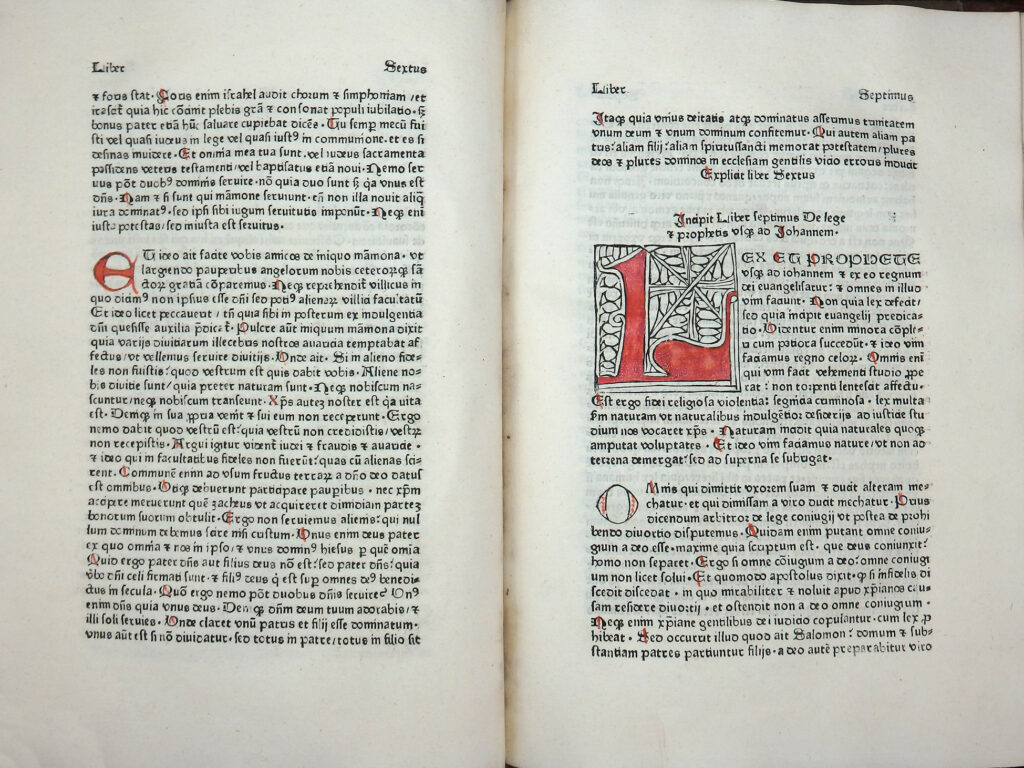 Liber Sextus
⁊ foris stat. Foris enim israhel audit chorum ⁊ simphoniam /et
irascit᷑ quia hic cōcinit plebis grā ⁊ consonat populi iubilatio. sꝫ
bonus pater etiā hūc saluare cupiebat dicēs. Tu semꝑ mecū fui
sti vel quasi iudeus in lege vel quasi iustꝰ in communione. et es si
desinas inuidere. Et omnia mea tua sunt. vel iudeus sacramenta
possidens veteris testamenti/vel baptisatus etiā noui. Nemo ser
uus pōt duobꝰ dominis seruire. nō quia duo sunt sꝫ q̄a vnus est
dn̄s. Nam ⁊ si sunt qui māmone seruiunt. tn̄ non illa nouit aliq̄
iura dominatꝰ. sed ipsi sibi iugum seruitutis imponūt. Neqꝫ eni
iusta potestas/sed iniusta est seruitus.
ET ideo ait facite vobis amicos de iniquo māmona. vt
largiendo pauperibus angelorum nobis ceterorumqꝫ sā
ctorꝝ gratiā cōparemus. Neqꝫ reprehendit᷑ villicus in
quo diximꝰ non ipsius esse dn̄i sed potiꝰ alienarꝝ villicū facultatū
Et ideo licet peccauerit / tn̄ quia sibi in posterum ex indulgentia
dn̄i quesisse auxilia p̄dicat᷑. Pulcre aūt iniquum māmona dixit
quia varijs diuitiarum illecebris nostros auaricia temptabat af
fectus/vt vellemus seruire diuitijs. Vnde ait. Si in alieno fide⸗
les non fuistis: quod vestrum est quis dabit vobis. Aliene no⸗
bis diuitie sunt/quia preter naturam sunt. Neqꝫ nobiscum na⸗
scuntur/neqꝫ nobiscum transeunt. Xp̄s autez noster est q̄a vita
est. Deniqꝫ in sua ꝓpria venit ⁊ sui eum non receperunt. Ergo
nemo dabit quod vestrū est: quia vestrū non credidistis/vestꝝ
non recepistis. Argui igitur vident᷑ iudei ⁊ fraudis ⁊ auaricie.
⁊ ideo qui in facultatibus fideles non fuerūt: quas cū alienas sci⸗
rent. Commune enim ad vsum fructus terrarꝝ a dn̄o deo datuꝫ
est omnibus. Vtiqꝫ debuerunt participare pauꝑibus. nec xp̄m
accipere meruerunt quē zacheus vt acquireret dimidiam partez
bonorum suorum obtulit. Ergo non seruiemus alienis: qui nul
lum dominum debemus scire nisi cristum. Vnus enim deus pater
ex quo omnia ⁊ nos in ipso/⁊ vnus dominꝰ hiesus ꝑ quē omīa
Quid ergo pater dn̄s aut filius deus nō est: sed pater dn̄s: quia
v̄bo dn̄i celi firmati sunt. ⁊ filiꝰ deus q̄ est suꝑ omnes deꝰ benedi⸗
ctus in secula. Quō ergo nemo pōt duobus dn̄is seruire? Vnꝰ
enim dn̄s quia vnus deus. Deniqꝫ dn̄m deum tuum adorabis/⁊
illi soli seruies. Vnde claret vnū patris et filij esse dominatum.
vnus aūt est si nō diuidatur. sed totus in patre/totus in filio sit
Liber Septimus
Itaqꝫ quia vnius deitatis atqꝫ dominatus asserimus trinitatem
vnum deum ⁊ vnum dominum confitemur. Qui autem aliam pa
tris: aliam filij: aliam spiritussancti memorat potestatem/plures
deos ⁊ plures dominos in ecclesiam gentilis vicio erroris inducit
Explicit liber Sextus
Incipit Liber septimus De lege
⁊ prophetis vsqꝫ ad Johannem.
LEX ET PROPHETE
vsqꝫ ad iohannem ⁊ ex eo regnum
dei euangelisatur: ⁊ omnes in illud
vim faciunt. Non quia lex defecit/
sed quia incipit euangelij predica⸗
tio. Videntur enim minora cōple⸗
ri cum pociora succedūt. ⁊ ideo vim
faciamus regno celorꝝ. Omnis eni
qui vim facit vehementi studio ꝓpe
rat: non torpenti lentescit affectu.
Est ergo fidei religiosa violentia: segnicia criminosa. lex multa
s̄m naturam vt naturalibus indulgētior desiderijs ad iusticie stu
dium nos vocaret xp̄s. Naturam incidit quia naturales quoqꝫ
amputat voluptates. Et ideo vim faciamus nature/vt non ad
terrena demergat: sed ad superna se subrigat.
OMnis qui dimittit vxorem suam ⁊ ducit alteram me⸗
chatur. et qui dimissam a viro ducit mechatur. Prius
dicendum arbitror de lege coniugij vt postea de prohi
bendo diuortio disputemus. Quidam enim putant omne coniu⸗
gium a deo esse. maxime quia scriptum est. que deus coniunxit:
homo non separet. Ergo si omne cōiugium a deo: omne coniugi
um non licet solui. Et quomodo apostolus dixit. qꝫ si infidelis di
scedit discedat. in quo mirabiliter ⁊ noluit apud xp̄ianos cau⸗
sam residere diuortij. et ostendit non a deo omne coniugium.
Neqꝫ enim xp̄iane gentilibus dei iudicio copulantur. cum lex ꝓ
hibeat. Sed occurrit illud quod ait Salomon: domum ⁊ sub⸗
stantiam patres partiuntur filijs. a deo autē preparabitur viro